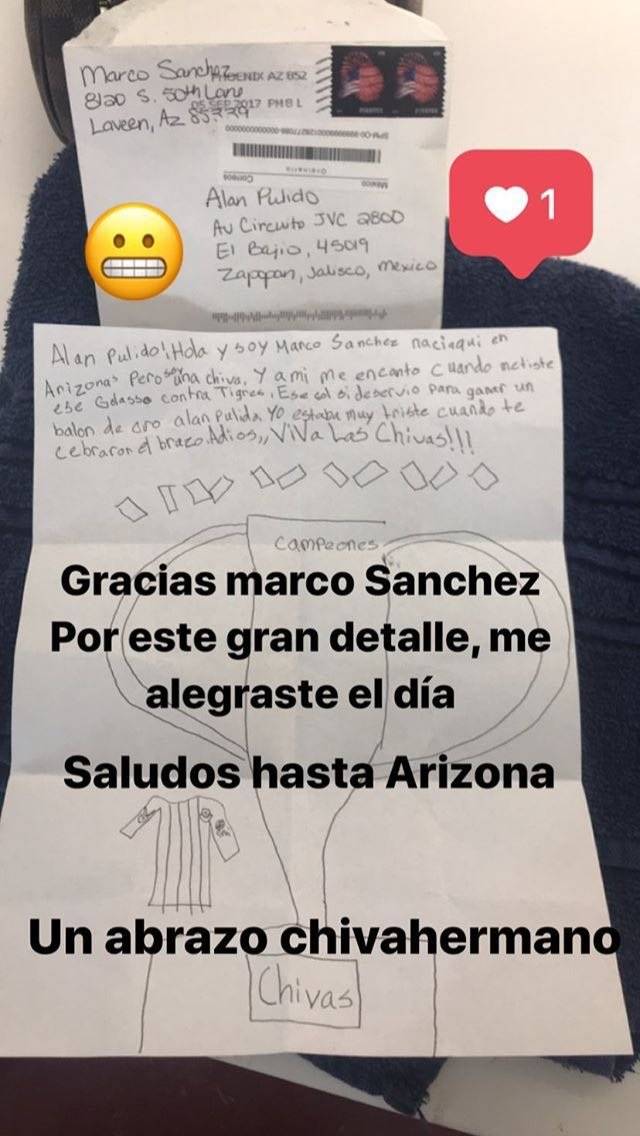 Marco Sanchez
PHOENIX AZ 852
8120 S. 50th Lane
05 SEP 2017 PM 8 L
Laveen, Az 85339
Correos
México
Alan Pulido
Av Circuito JVC 2800
El Bajio, 45019
Zappan, Jalisco, mexico
1
Alan Pulido! Hola y soy Marco Sanchez naciaqui en
Arizona Pero soy una chiva, Y a mi me encanto cuando metiste
ese Golasso contra Tigres, Ese gol si deservio para ganar un
balon de oro alan pulido. Yo estaba muy triste cuando te
cebraron el brazo. Adios,, ViVa Las Chivas!!!
Campeones
Gracias marco Sanchez
Por este gran detalle, me
alegraste el día
Saludos hasta Arizona
Un abrazo chivahermano
Chivas